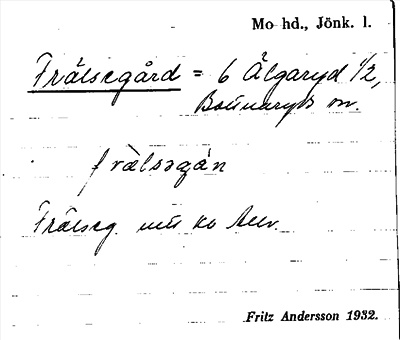 Mo hd., Jönk. l.
Frälsegård = 6 Älgaryd 1/2,
Bottnaryds sn.
frälsegån
Frälseg.
Fritz Andersson 1932.